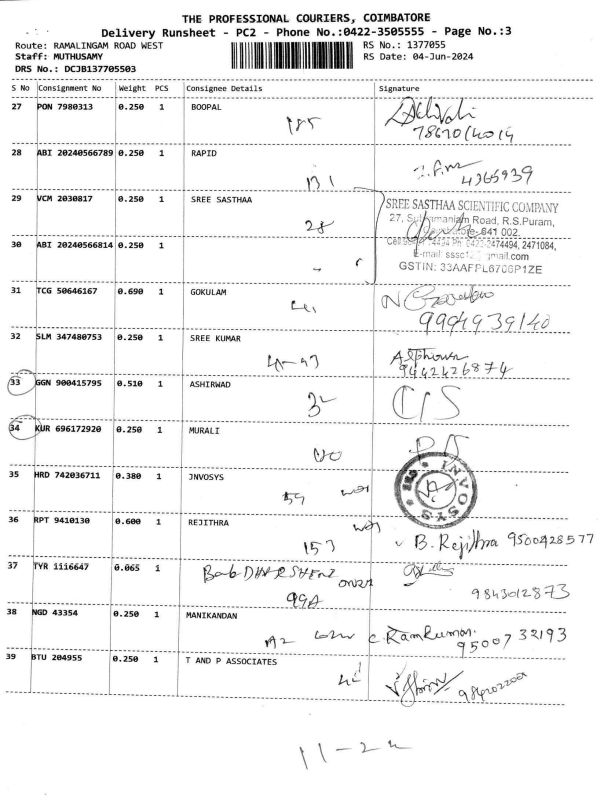 THE PROFESSIONAL COURIERS, COIMBATORE
Delivery Runsheet - PC2 - Phone No.:0422-3505555 - Page No.:3
Route: RAMALINGAM ROAD WEST RS No.: 1377055
Staff: MUTHUSAMY RS Date: 04-Jun-2024
DRS No.: DCJB137705503
S No Consignment No Weight PCS Consignee Details Signature
27 PON 7980313 0.250 1 BOOPAL
185
28 ABI 20240566789 0.250 1 RAPID
131 4365939
29 VCM 2030817 0.250 1 SREE SASTHAA
28
SREE SASTHAA SCIENTIFIC COMPANY
27, Road, R.S.Puram,
641 002.
2474494, 2471084,
E-mail: gmail.com
GSTIN: 33AAFPL6706P1ZE
30 ABI 20240566814 0.250 1
31 TCG 50646167 0.690 1 GOKULAM
9994939140
32 SLM 347480753 0.250 1 SREE KUMAR
9442426874
33 GGN 900415795 0.510 1 ASHIRWAD
C/S
34 KUR 696172920 0.250 1 MURALI
35 HRD 742036711 0.380 1 JNVOSYS
59
INVOSYS
36 RPT 9410130 0.600 1 REJITHRA
153 B. Rejithra 9500428577
37 TYR 1116647 0.065 1
DHARSHENI
99A 9843012873
38 NGD 43354 0.250 1 MANIKANDAN
C. Ramkumar.
9500732193
39 BTU 204955 0.250 1 T AND P ASSOCIATES
11-24